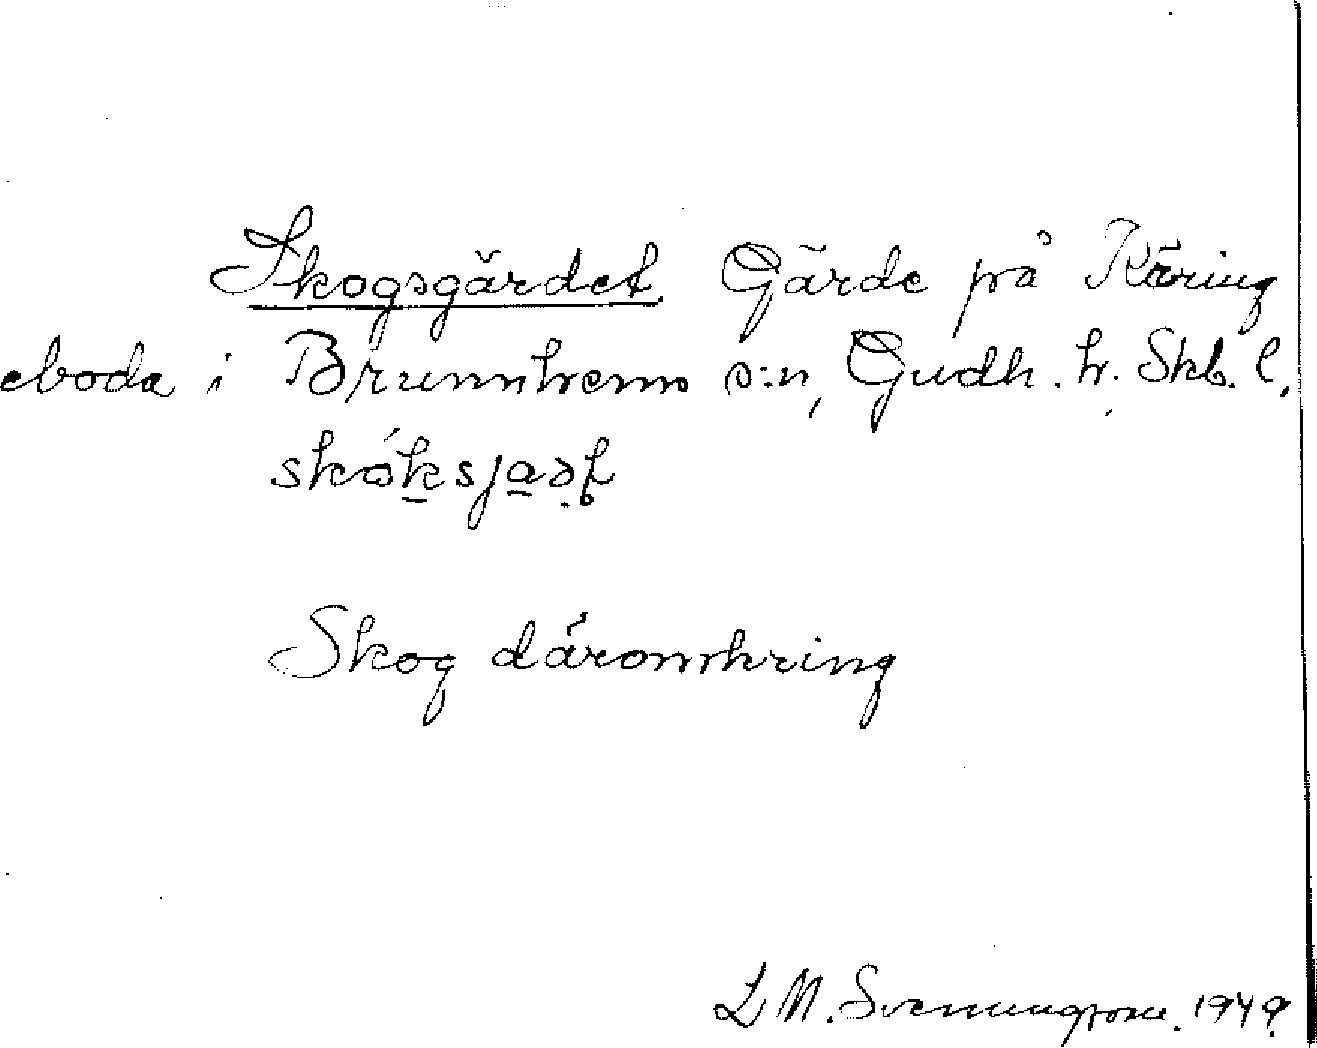 Skogsgärdet. Gärde på Käring
eboda i Brunnhems s:n, Gudh. h. Skb. l.
Skog däromkring
L M. Svenungsson. 1949.